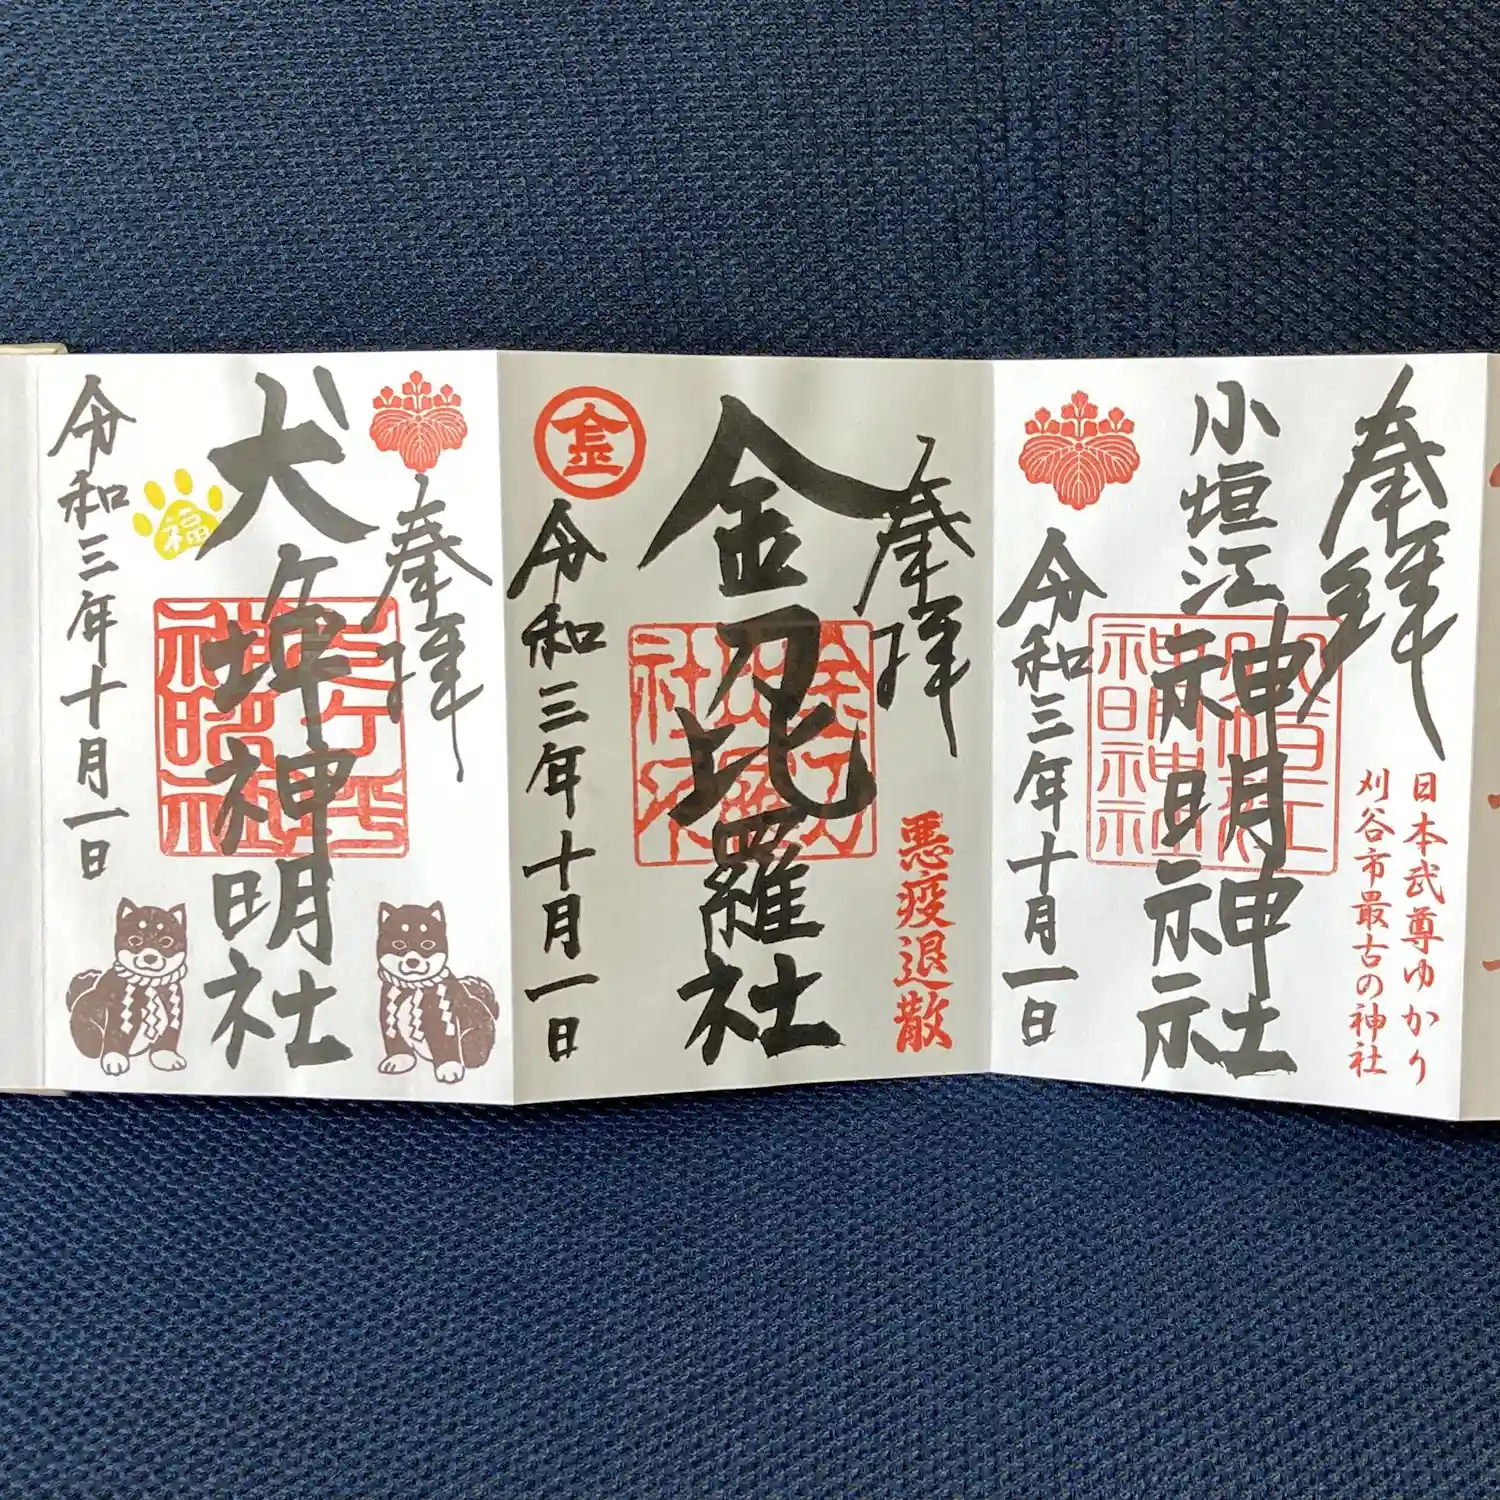 奉拝
小垣江
神明神社
日本武尊ゆかり
刈谷市最古の神社
令和三年十月一日
奉拝
金刀比羅社
金
悪疫退散
令和三年十月一日
奉拝
犬ヶ坪神明社
福
令和三年十月一日